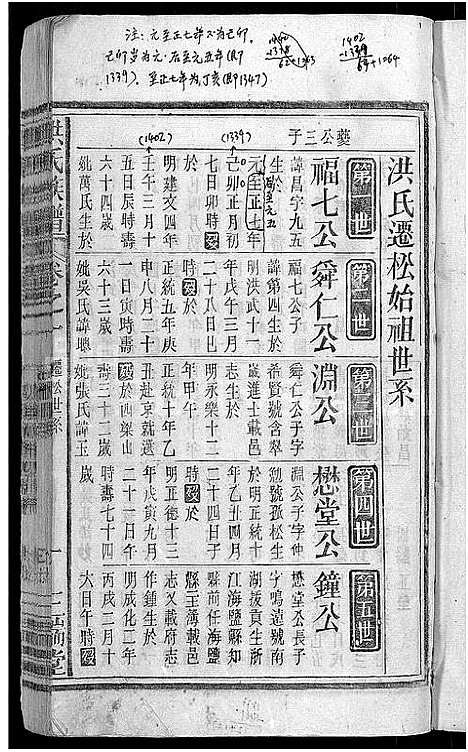 注：元至正七年不为己卯．
己卯岁为元·后至元五年(即
1339)．至正七年为丁亥(即1347)
1402
-1339
洪氏遷松始祖世系
第一世
夔公三子
福七公
諱昌字九五
生於
元至正七年
后至元五
己卯正月初
(1339)
七日卯時歿
於
明建文四年
壬午三月十
(1402)
五日辰時壽
六十四歲
妣萬氏生於
第二世
舜仁公
福七公子
諱第四生於
明洪武十一
年戊午三月
二十八日巳
時歿於
正統五年庚
申八月二十
一日寅時壽
六十三歲
妣吳氏諱
第三世
淵公
舜仁公子字
希賢號含翠
歲進士載邑
志生於
明永樂十二
年甲午
正統十年乙
丑赴京就選
歿於西梁山
壽三十二歲
妣張氏諱玉
第四世
懋堂公
淵公子字仲
勉號孤松生
於明正統十
年乙丑四月
二十四日子
時歿於
明正德十三
年庚寅九月
二十一日午
時壽七十四
歲
第五世
鐘公
懋堂公長子
字鳴遠號南
湖拔貢生所
江海鹽縣知
縣前任海鹽
縣主簿載府
志又載邑志
作鍾生於
明成化二年
丙戌二月十
大日午時歿
洪氏族譜
遷松世系
一